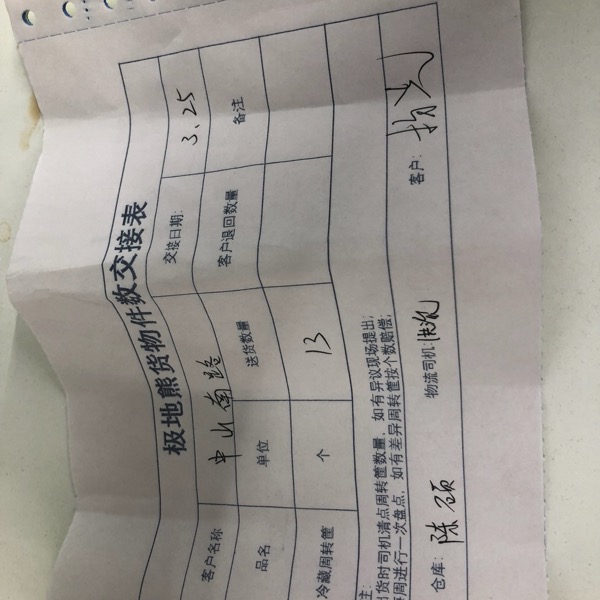 极地熊货物件数交接表
客户名称 中山南路 交接日期: 3.25
品名 单位 送货数量 客户退回数量 备注
冷藏周转筐 个 13
注:
出货时司机清点周转筐数量,如有异议现场提出;
每周进行一次盘点,如有差异周转筐按个数赔偿;
仓库: 陈硕 物流司机: 客户: